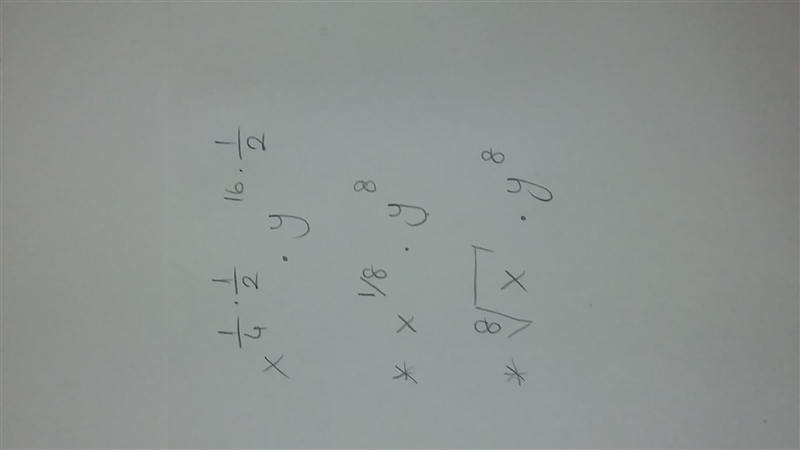 x^{\frac{1}{4} \cdot \frac{1}{2}} \cdot y^{16 \cdot \frac{1}{2}}
* x^{1/8} \cdot y^{8}
* \sqrt[8]{x} \cdot y^{8}